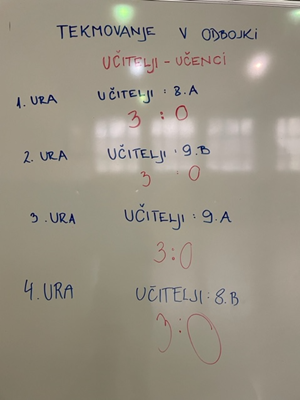 TEKMOVANJE V ODBOJKI
UČITELJI - UČENCI
1. URA UČITELJI : 8.A
3 : 0
2. URA UČITELJI : 9.B
3 : 0
3. URA UČITELJI : 9.A
3:0
4. URA UČITELJI : 8.B
3:0